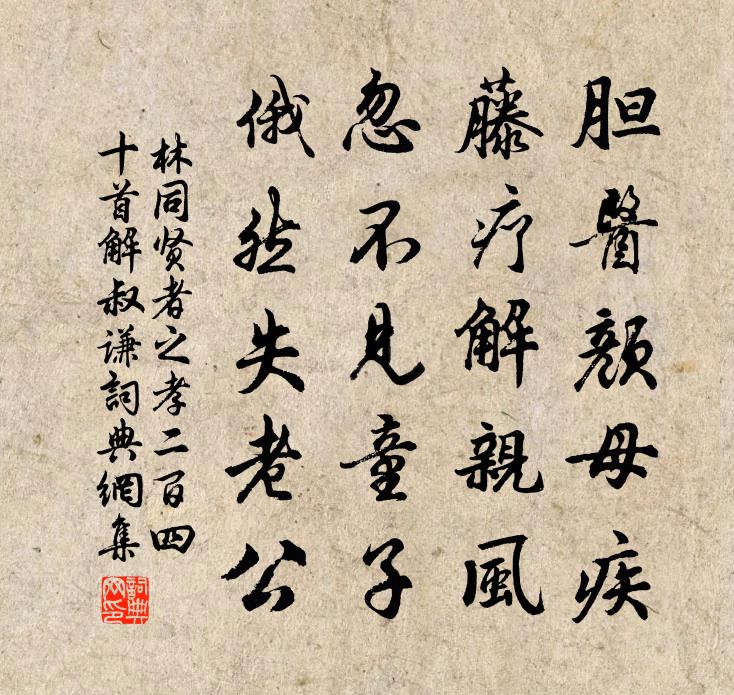 胆醫顔母疾
藤疗解親風
忽不見童子
俄然失老公
林同贤者之孝二百四
十首解叔谦詞典網集
詞典網印